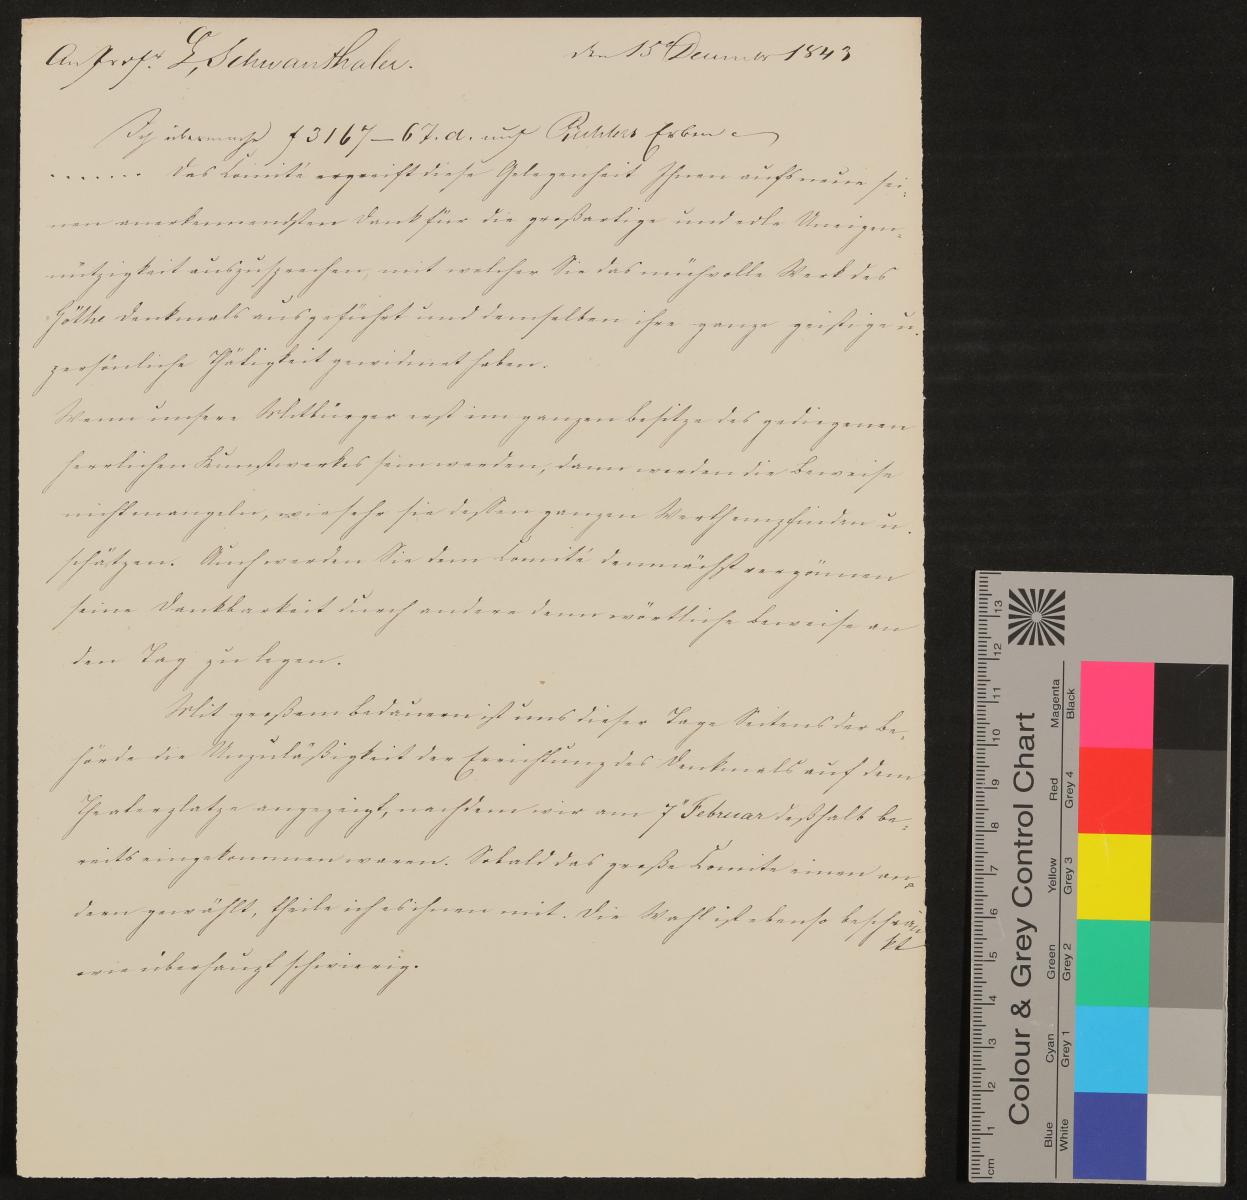 An Prof. L. Schwanthaler. den 15 December 1843
Ich übermache f 3167-67. d. auf Erben
....... Das Comité ergreift diese Gelegenheit Ihnen aufs neue sei-
nen anerkennendsten Dank für die großartige und edle Uneigen-
nützigkeit auszusprechen, mit welcher Sie das mühevolle Werk des
Göthe Denkmals ausgeführt und demselben ihre ganze geistige u.
persönliche Thätigkeit gewidmet haben.
Wenn unsere Mitbürger erst im ganzen Besitze des gediegenen
herrlichen Kunstwerkes sein werden, dann werden die Beweise
nicht mangeln, wie sehr sie dessen ganzen Werth empfinden u.
schätzen. Auch werden Sie dem Comité demnächst vergönnen
seine Dankbarkeit durch andere denn wörtliche Beweise an
den Tag zu legen.
Mit großem Bedauern ist uns dieser Tage Seitens der Be-
hörde die Unzuläßigkeit der Errichtung des Denkmals auf dem
Theaterplatze angezeigt, nachdem wir am 7 Februar deßhalb be-
reits eingekommen waren. Sobald das große Comite einen an-
dern gewählt, theile ich es ihnen mit. Die Wahl ist ebenso beschrän
kt
wie überhaupt schwierig.
Colour & Grey Control Chart
Blue Cyan Green Yellow Red Magenta
White Grey 1 Grey 2 Grey 3 Grey 4 Black
cm 1 2 3 4 5 6 7 8 9 10 11 12 13